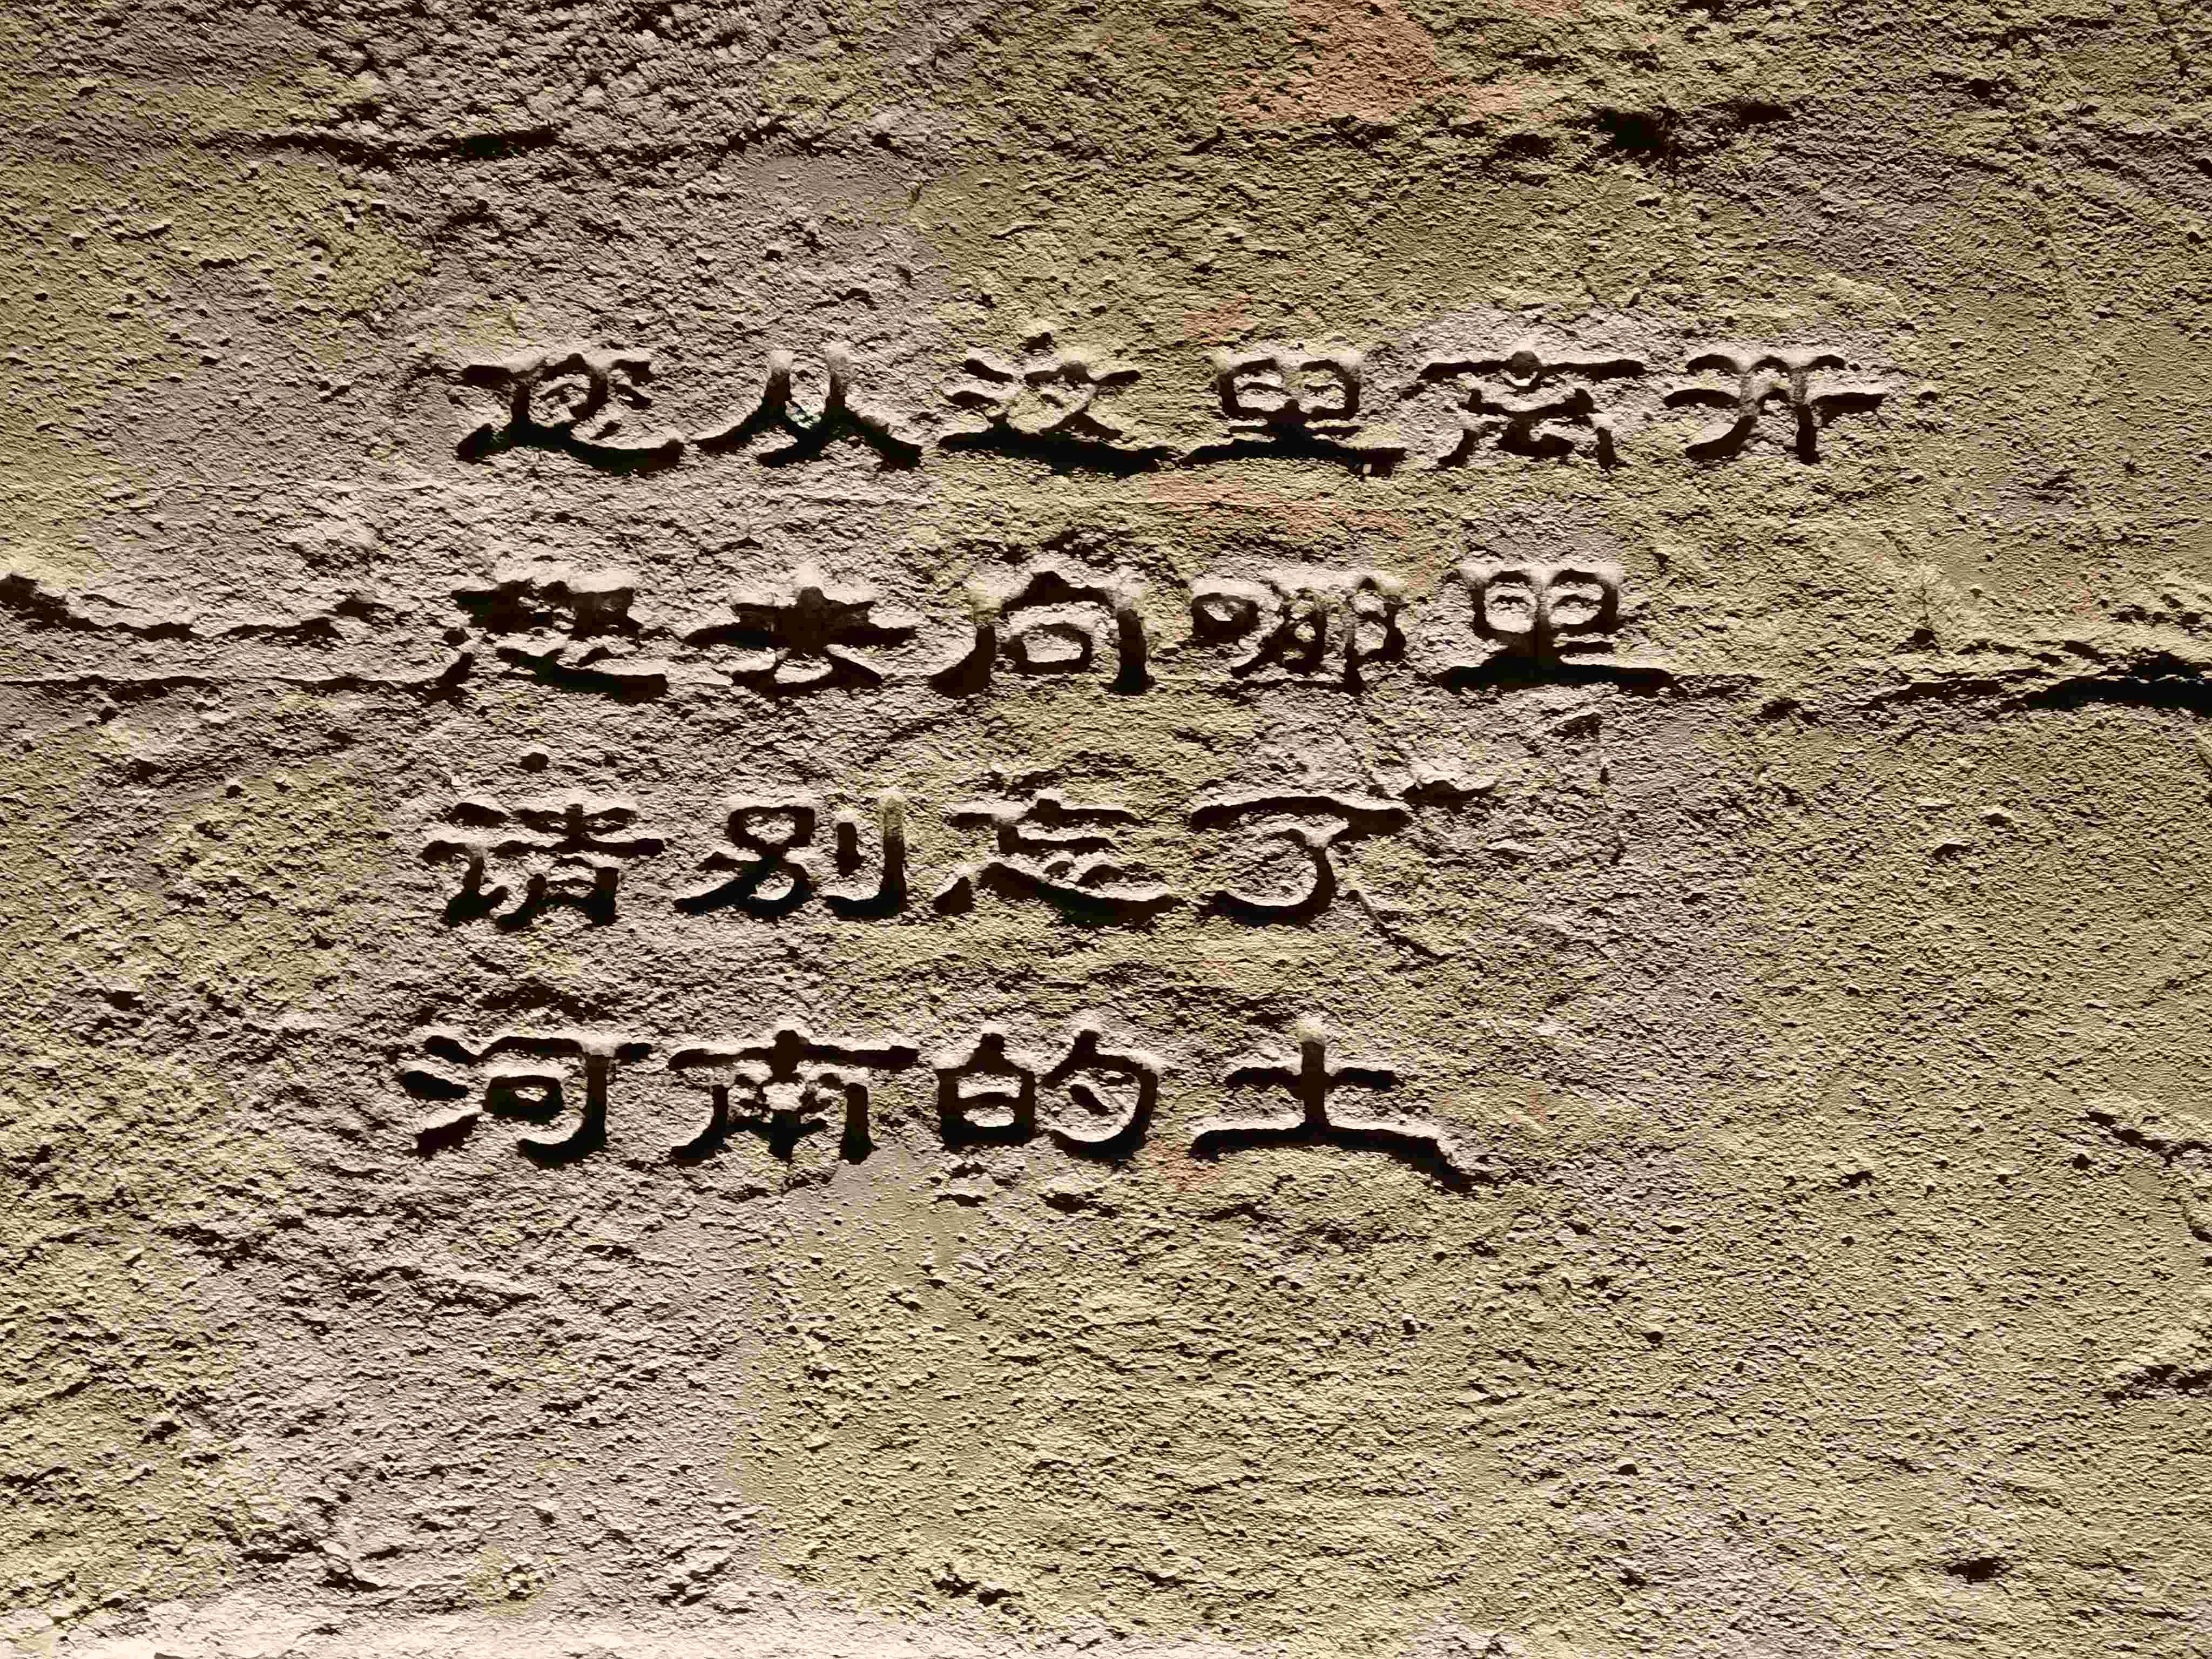 您从这里离开
是去向哪里
请别忘了
河南的土